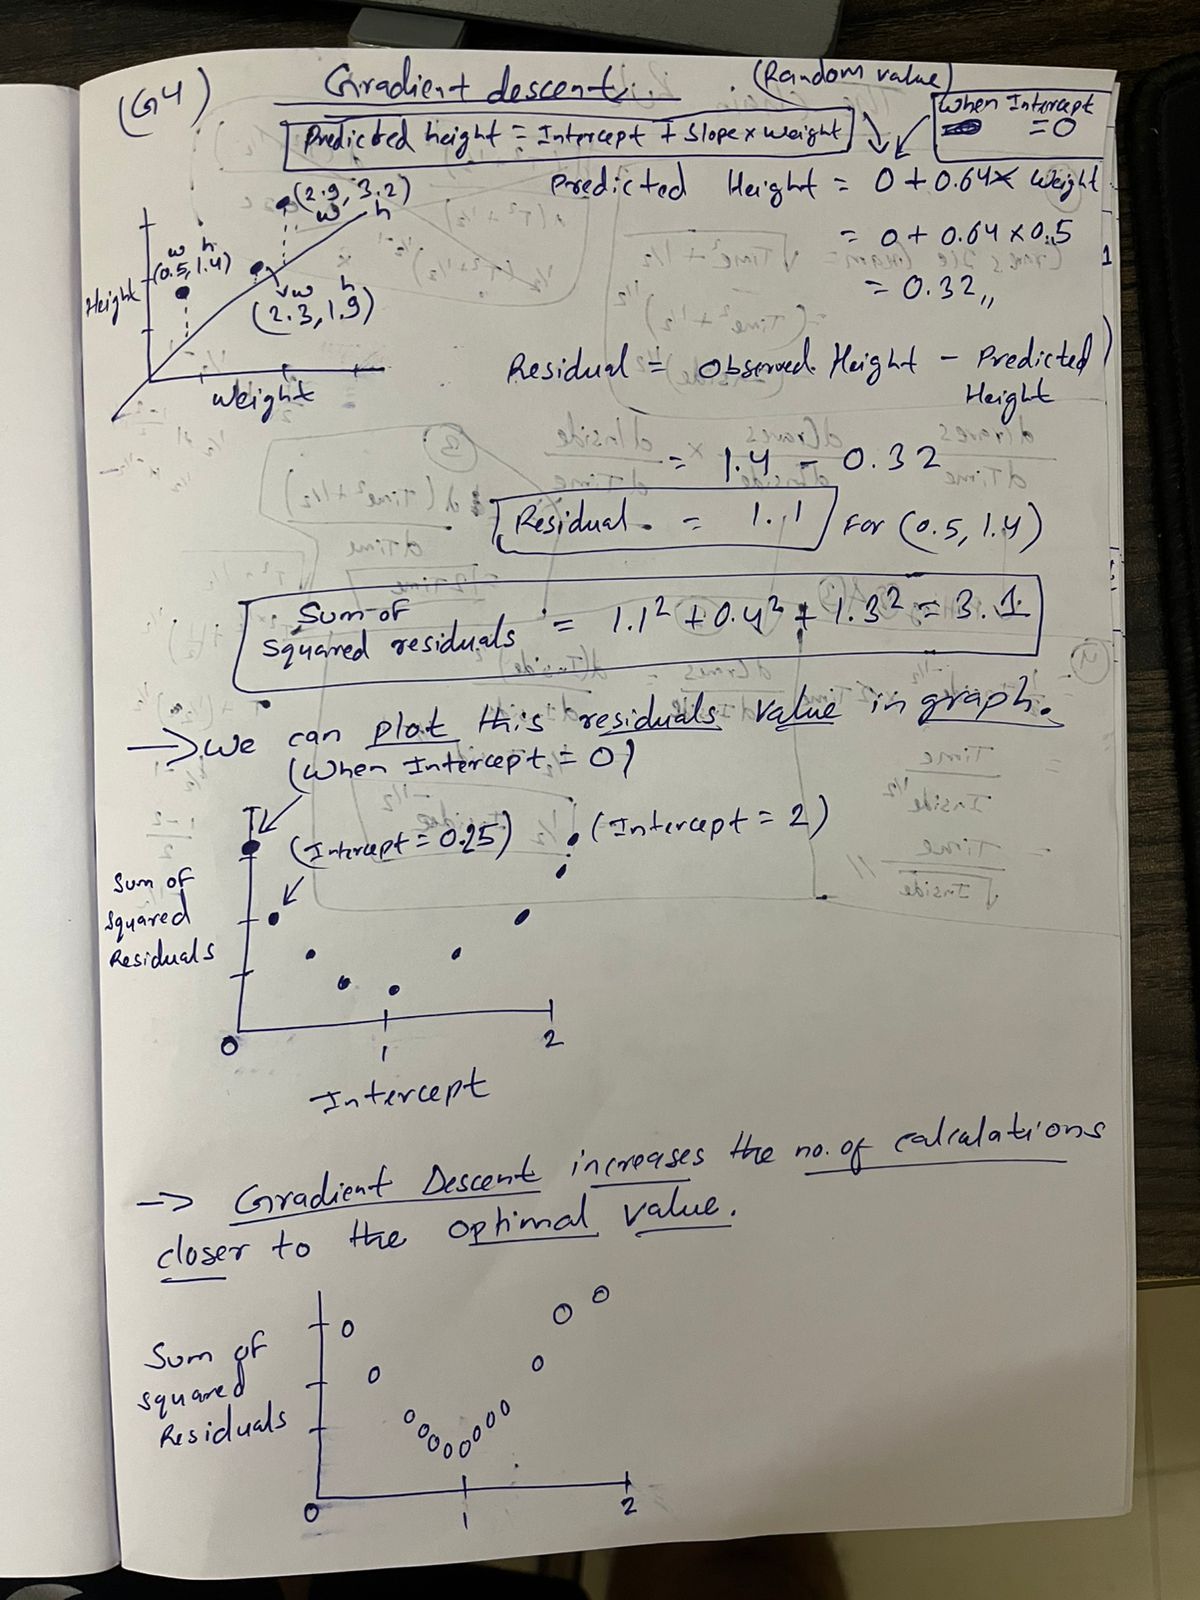 (G4)
Gradient descent
(Random value)
Predicted height = Intercept + Slope x weight
When Intercept
= 0
Predicted Height = 0 + 0.64 x Weight
= 0 + 0.64 x 0.5
= 0.32,,
(2.9, 3.2)
w h
w h
(0.5, 1.4)
w h
(2.3, 1.9)
Height
Weight
Residual = Observed Height - Predicted
Height
= 1.4 - 0.32
Residual = 1.1 For (0.5, 1.4)
Sum of
squared residuals = 1.1² + 0.4² + 1.3² = 3.1
-> We can plot this residuals value in graph.
(When Intercept = 0)
(Intercept = 0.25)
(Intercept = 2)
Sum of
Squared
Residuals
0 1 2
Intercept
-> Gradient Descent increases the no. of calculations
closer to the optimal value.
Sum of
squared
Residuals
0 1 2